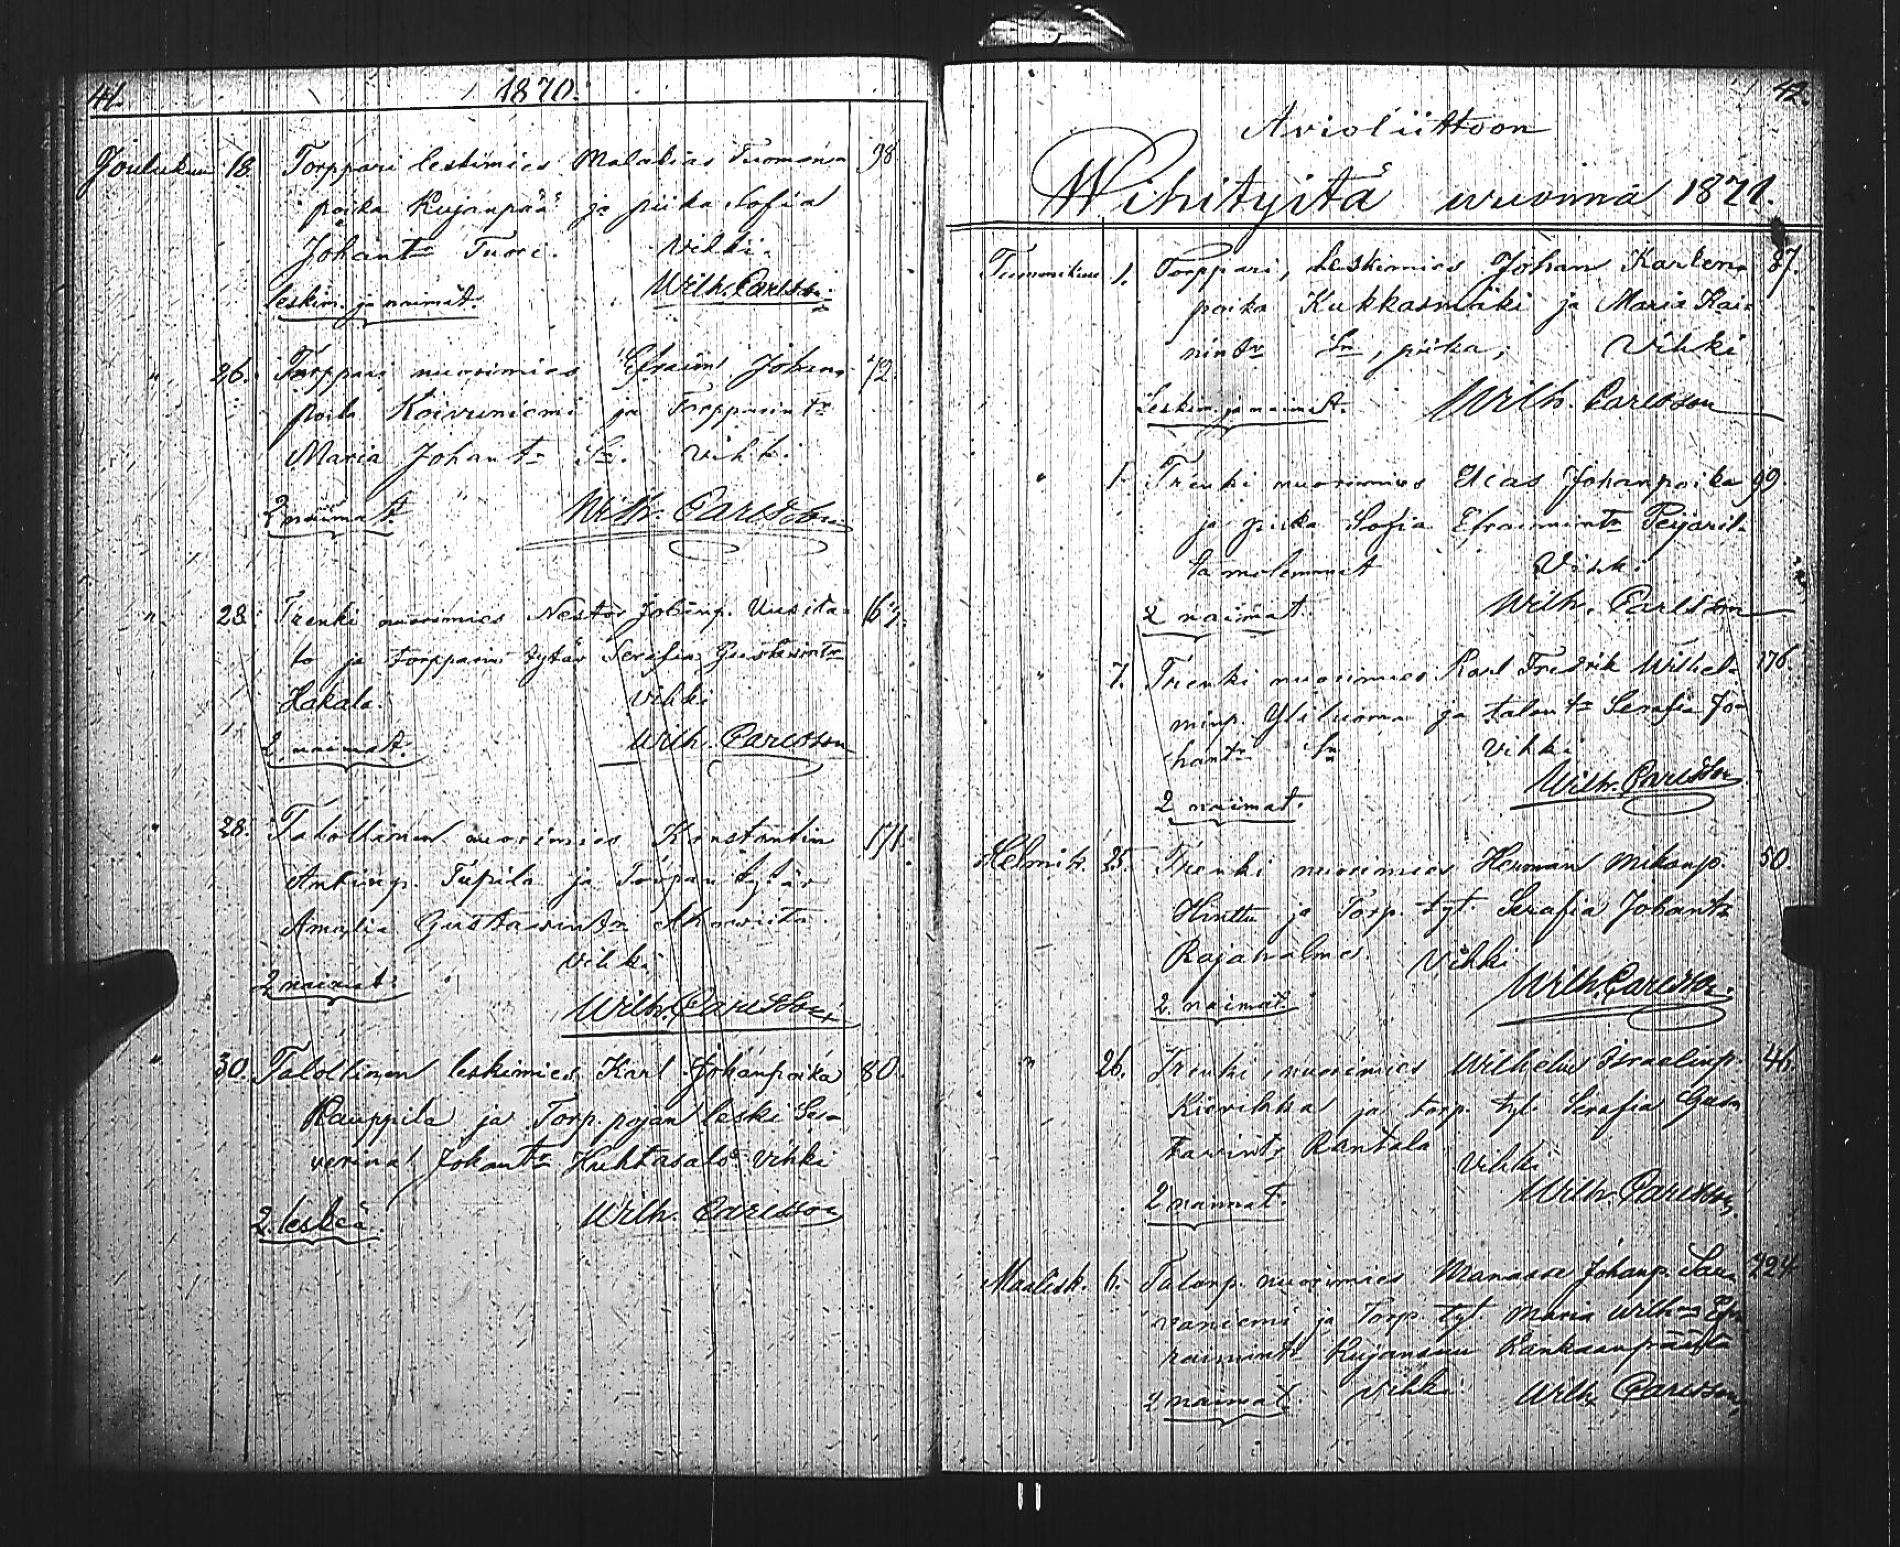 41.
1870.
Joulukuu 18. Torppari leskimies Malakias Tuomaan 98
poika Kujanpää ja piika Sofia
Johantr Tuori. Vihki.
Wilh. Carlsson.
leskim. ja naimat.
" 26. Torppari nuorimies Efraim Johan 72.
poika Koivuniemi ja Torpparintr
Maria Johantr Sr. Vihki.
2 naimat. Wilh. Carlsson
" 28. Trenki nuorimies Nestor Johanp. Uusita-
lo ja torpparin tytär Serafia Gustavintr
Hakala. Vihki
2 naimat. Wilh. Carlsson
" 28. Talollinen nuorimies Konstantin 171.
Antinp. Tupila ja Torpan tytär
Amalia Gustavintr
Vihki
2 naimat. Wilh. Carlsson
" 30. Talollinen leskimies Karl Johanpoika 80.
Kauppila ja Torp. pojan leski Se-
verina Johantr Huhtasalo Vihki
2 leskeä. Wilh. Carlsson
42.
Avioliittoon
Wihityitä vuonna 1871.
Tammikuu 1. Torppari, Leskimies Johan Kaarlen 87.
poika Kukkasmäki ja Maria Kai-
nintr Sr, piika; Vihki
Leskim. ja naimat. Wilh. Carlsson
" 1. Trenki nuorimies Elias Johanpoika 99.
ja piika Sofia Efraimintr
ta molemmat Vihki
2 naimat. Wilh. Carlsson
" 7. Trenki nuorimies Karl Fredrik Wilhel- 176.
minp. Yliluoma ja talontr Serafia Jo-
hantr Sr Vihki
2 naimat. Wilh. Carlsson
Helmik. 25. Trenki nuorimies Herman Mikanp. 50.
Hinttu ja Torp. tyt. Serafia Johantr
Rajahalmes. Vihki
2. naimat. Wilh. Carlsson.
" 26. Trenki, nuorimies Wilhelm Israelinp. 46.
Kiwilikka ja torp. tyt. Serafia Gus-
tavintr Rantala Vihki
2 naimat. Wilh. Carlsson
Maalisk. 6. Talonp. nuorimies Manasse Johanp. Saa- 224.
raniemi ja Torp. tyt. Maria Wilhna Ef-
raimintr Kujansuu Kankaanpäästä
2 naimat. Vihki Wilh. Carlsson